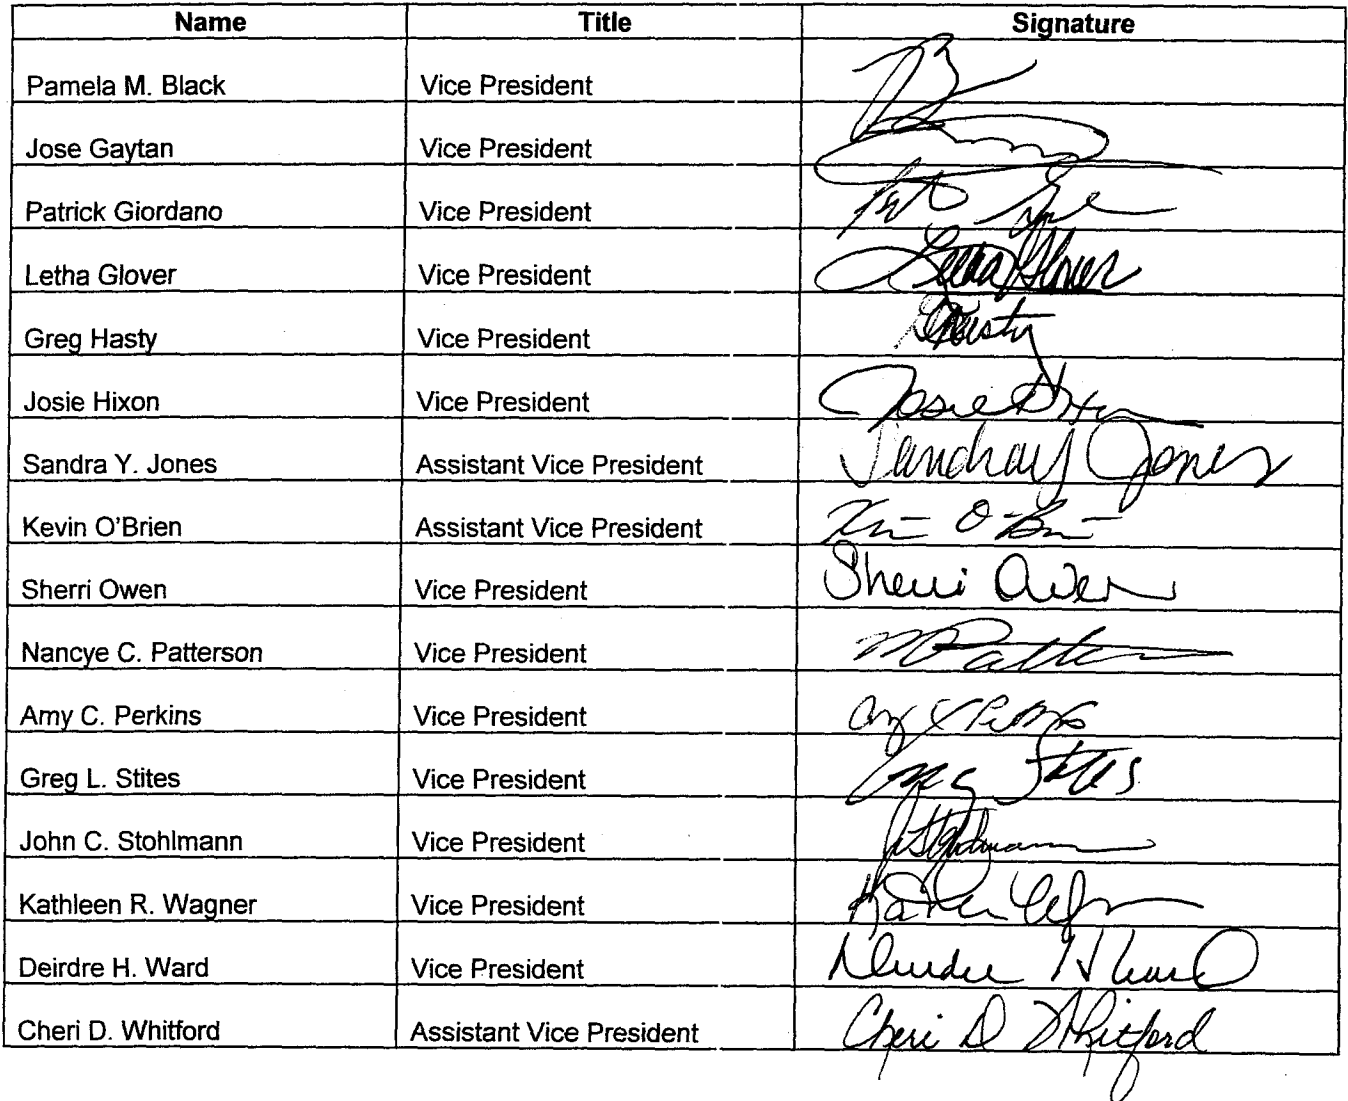 Name Title Signature
Pamela M. Black Vice President
Jose Gaytan Vice President
Patrick Giordano Vice President
Letha Glover Vice President Letha Glover
Greg Hasty Vice President GHasty
Josie Hixon Vice President Josie Hixon
Sandra Y. Jones Assistant Vice President Sandra Y Jones
Kevin O'Brien Assistant Vice President Kevin O'Brien
Sherri Owen Vice President Sherri Owen
Nancye C. Patterson Vice President
Amy C. Perkins Vice President Amy C Perkins
Greg L. Stites Vice President Greg Stites
John C. Stohlmann Vice President
Kathleen R. Wagner Vice President
Deirdre H. Ward Vice President Deirdre H Ward
Cheri D. Whitford Assistant Vice President Cheri D Whitford